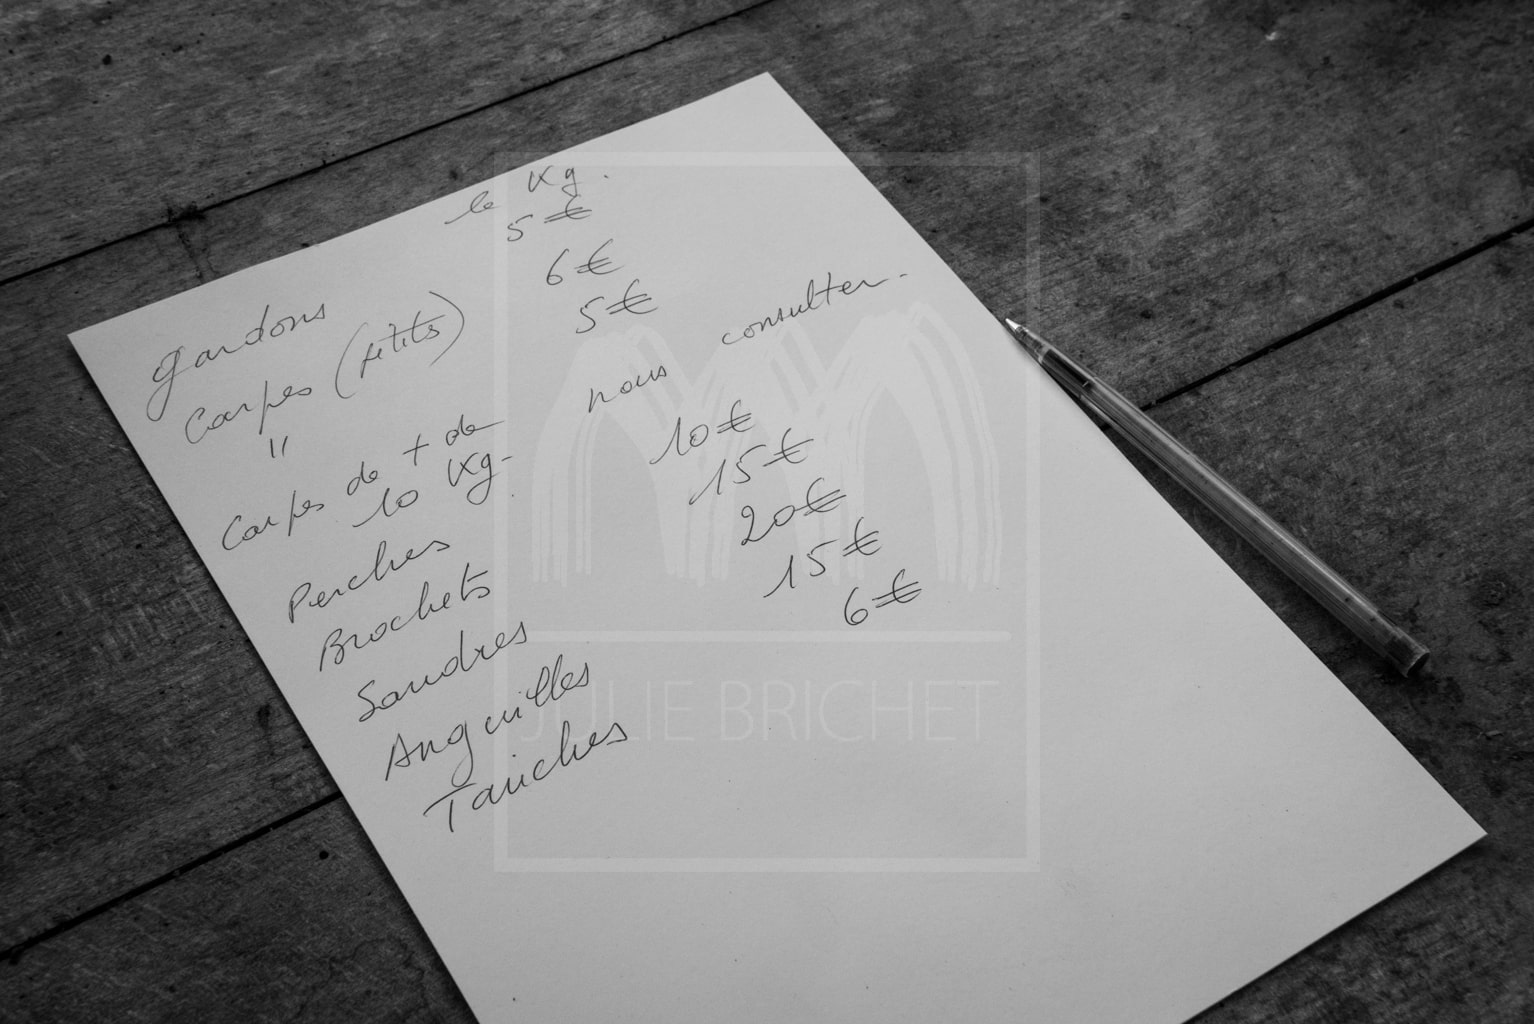 le Kg.
gardons 5 €
Carpes (petits) 6 €
" 5 €
Carpes de + de nous consulter.
10 Kg.
Perches 10 €
Brochets 15 €
Sandres 20 €
Anguilles 15 €
Tanches 6 €
JULIE BRICHET